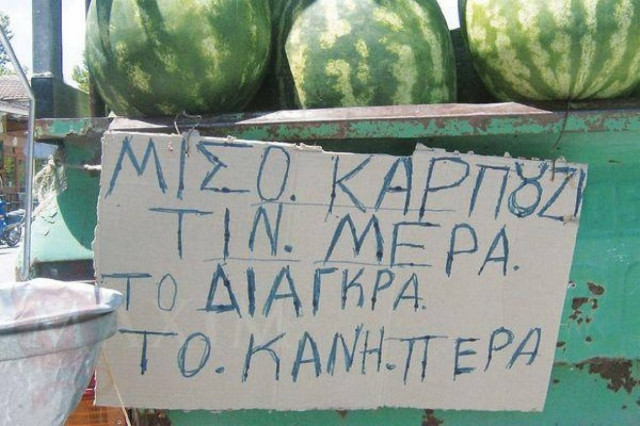 ΜΙΣΟ. ΚΑΡΠȣΖΙ
ΤΙΝ. ΜΕΡΑ.
ΤΟ ΔΙΑΓΚΡΑ.
ΤΟ. ΚΑΝΗ. ΠΕΡΑ